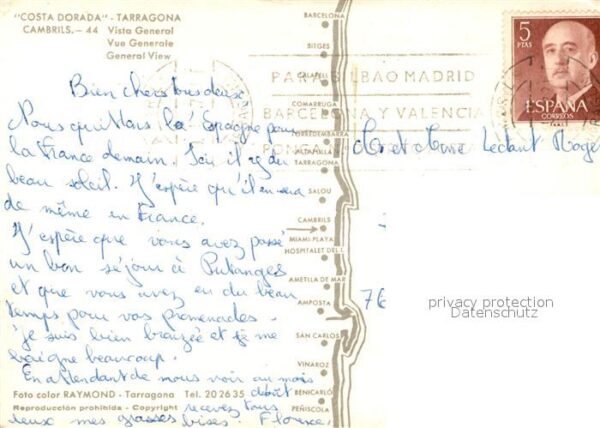 "COSTA DORADA" - TARRAGONA
CAMBRILS. - 44 Vista General
Vue Generale
General View
Bien chers tous deux,
Nous quittons l'Espagne pour
la France demain. Ici il y a du
beau soleil. J'espère qu'il en sera
de même en France.
J'espère que vous avez passé
un bon séjour à Putanges
et que vous avez eu du beau
temps pour vos promenades.
je suis bien bronzée et je me
baigne beaucoup.
En attendant de nous voir au mois
d'août
recevez tous
deux mes grosses bises. Florence.
Foto color RAYMOND - Tarragona Tel. 20 26 35
Reproducción prohibida - Copyright
BARCELONA
SITGES
CALAFELL
COMARRUGA
TORREDEMBARRA
ALTAFULLA
TARRAGONA
SALOU
CAMBRILS
MIAMI PLAYA
HOSPITALET DEL I.
AMETLLA DE MAR
AMPOSTA
SAN CARLOS
VINAROZ
BENICARLÓ
PEÑISCOLA
PARA BILBAO MADRID
BARCELONA Y VALENCIA
PONGA
5
PTAS
ESPAÑA
CORREOS
Mr et Mme Lédant Roger
76
privacy protection
Datenschutz